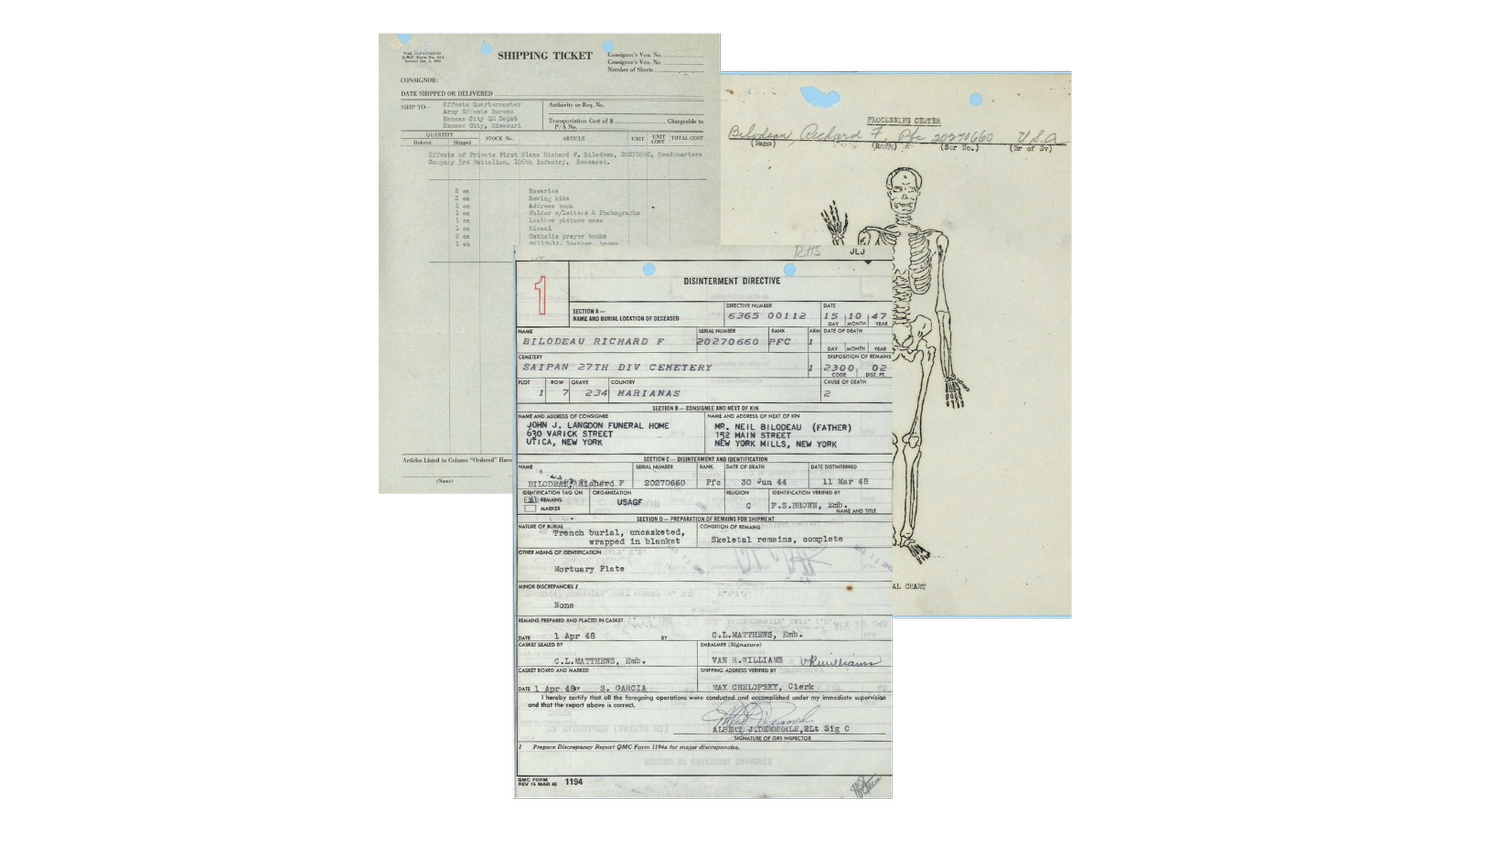 WAR DEPARTMENT
Q.M.C. Form No. 434
SHIPPING TICKET
Consignor's Vou. No.
Consignee's Vou. No.
Number of Sheets
CONSIGNOR:
DATE SHIPPED OR DELIVERED
SHIP TO—
Effects Quartermaster
Army Effects Bureau
Kansas City QM Depot
Kansas City, Missouri
Authority or Req. No.
Transportation Cost of $ Chargeable to
P/A No.
QUANTITY
Ordered Shipped STOCK No. ARTICLE UNIT UNIT COST TOTAL COST
Effects of Private First Class Richard F. Bilodeau, 20270660, Headquarters
Company 3rd Battalion, 106th Infantry. Deceased.
2 ea Rosaries
2 ea Sewing kits
1 ea Address book
1 ea Folder w/letters & Photographs
1 ea Leather picture case
1 ea Missal
ea Catholic prayer books
1 ea Billfold, leather, brown
Articles Listed in Column "Ordered" Have
(Name)
PROCESSING CENTER
Bilodeau, Richard F. Pfc 20270660 U.S.A
(Name) (Rank) (Ser No.) (Br of Sv)
AL CHART
RHS JLJ
1
DISINTERMENT DIRECTIVE
SECTION A—
NAME AND BURIAL LOCATION OF DECEASED
DIRECTIVE NUMBER
6365 00112
DATE
15 10 47
DAY MONTH YEAR
NAME SERIAL NUMBER RANK ARM DATE OF DEATH
BILODEAU RICHARD F 20270660 PFC 1
DAY MONTH YEAR
CEMETERY DISPOSITION OF REMAINS
SAIPAN 27TH DIV CEMETERY 1 2300 02
CODE DIST. PT.
PLOT ROW GRAVE COUNTRY CAUSE OF DEATH
1 7 234 MARIANAS 2
SECTION B — CONSIGNEE AND NEXT OF KIN
NAME AND ADDRESS OF CONSIGNEE
JOHN J. LANGDON FUNERAL HOME
630 VARICK STREET
UTICA, NEW YORK
NAME AND ADDRESS OF NEXT OF KIN
MR. NEIL BILODEAU (FATHER)
152 MAIN STREET
NEW YORK MILLS, NEW YORK
SECTION C — DISINTERMENT AND IDENTIFICATION
NAME SERIAL NUMBER RANK DATE OF DEATH DATE DISTINTERRED
BILODEAU, Richard F 20270660 Pfc 30 Jun 44 11 Mar 48
IDENTIFICATION TAG ON ORGANIZATION RELIGION IDENTIFICATION VERIFIED BY
REMAINS
MARKER
USAGF C F.S.BROWN, Emb.
NAME AND TITLE
SECTION D — PREPARATION OF REMAINS FOR SHIPMENT
NATURE OF BURIAL
Trench burial, uncasketed,
wrapped in blanket
CONDITION OF REMAINS
Skeletal remains, complete
OTHER MEANS OF IDENTIFICATION
Mortuary Plate
MINOR DISCREPANCIES 1
None
REMAINS PREPARED AND PLACED IN CASKET
DATE 1 Apr 48 BY C.L.MATTHEWS, Emb.
CASKET SEALED BY
C.L.MATTHEWS, Emb.
EMBALMER (Signature)
VAN R.WILLIAMS VRWilliams
CASKET BOXED AND MARKED
DATE 1 Apr 48 BY S. GARCIA
SHIPPING ADDRESS VERIFIED BY
MAX CHELOFSKY, Clerk
I hereby certify that all the foregoing operations were conducted and accomplished under my immediate supervision
and that the report above is correct.
SIGNATURE OF GRS INSPECTOR
1 Prepare Discrepancy Report QMC Form 1194a for major discrepancies.
QMC FORM
REV 15 MAR 46 1194